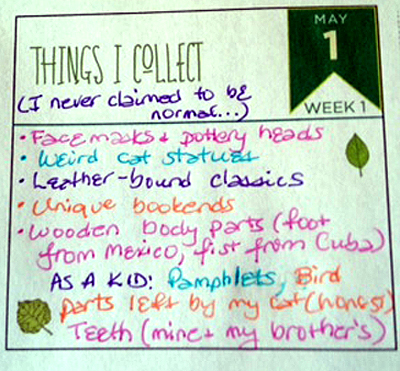 MAY
1
WEEK 1
THINGS I COLLECT
(I never claimed to be
normal...)
• Face masks & pottery heads
• Weird cat statues
• Leather-bound classics
• Unique bookends
• Wooden body parts (foot
from Mexico, fist from Cuba)
AS A KID: Pamphlets, Bird
parts left by my cat (honest)
Teeth (mine & my brother's)